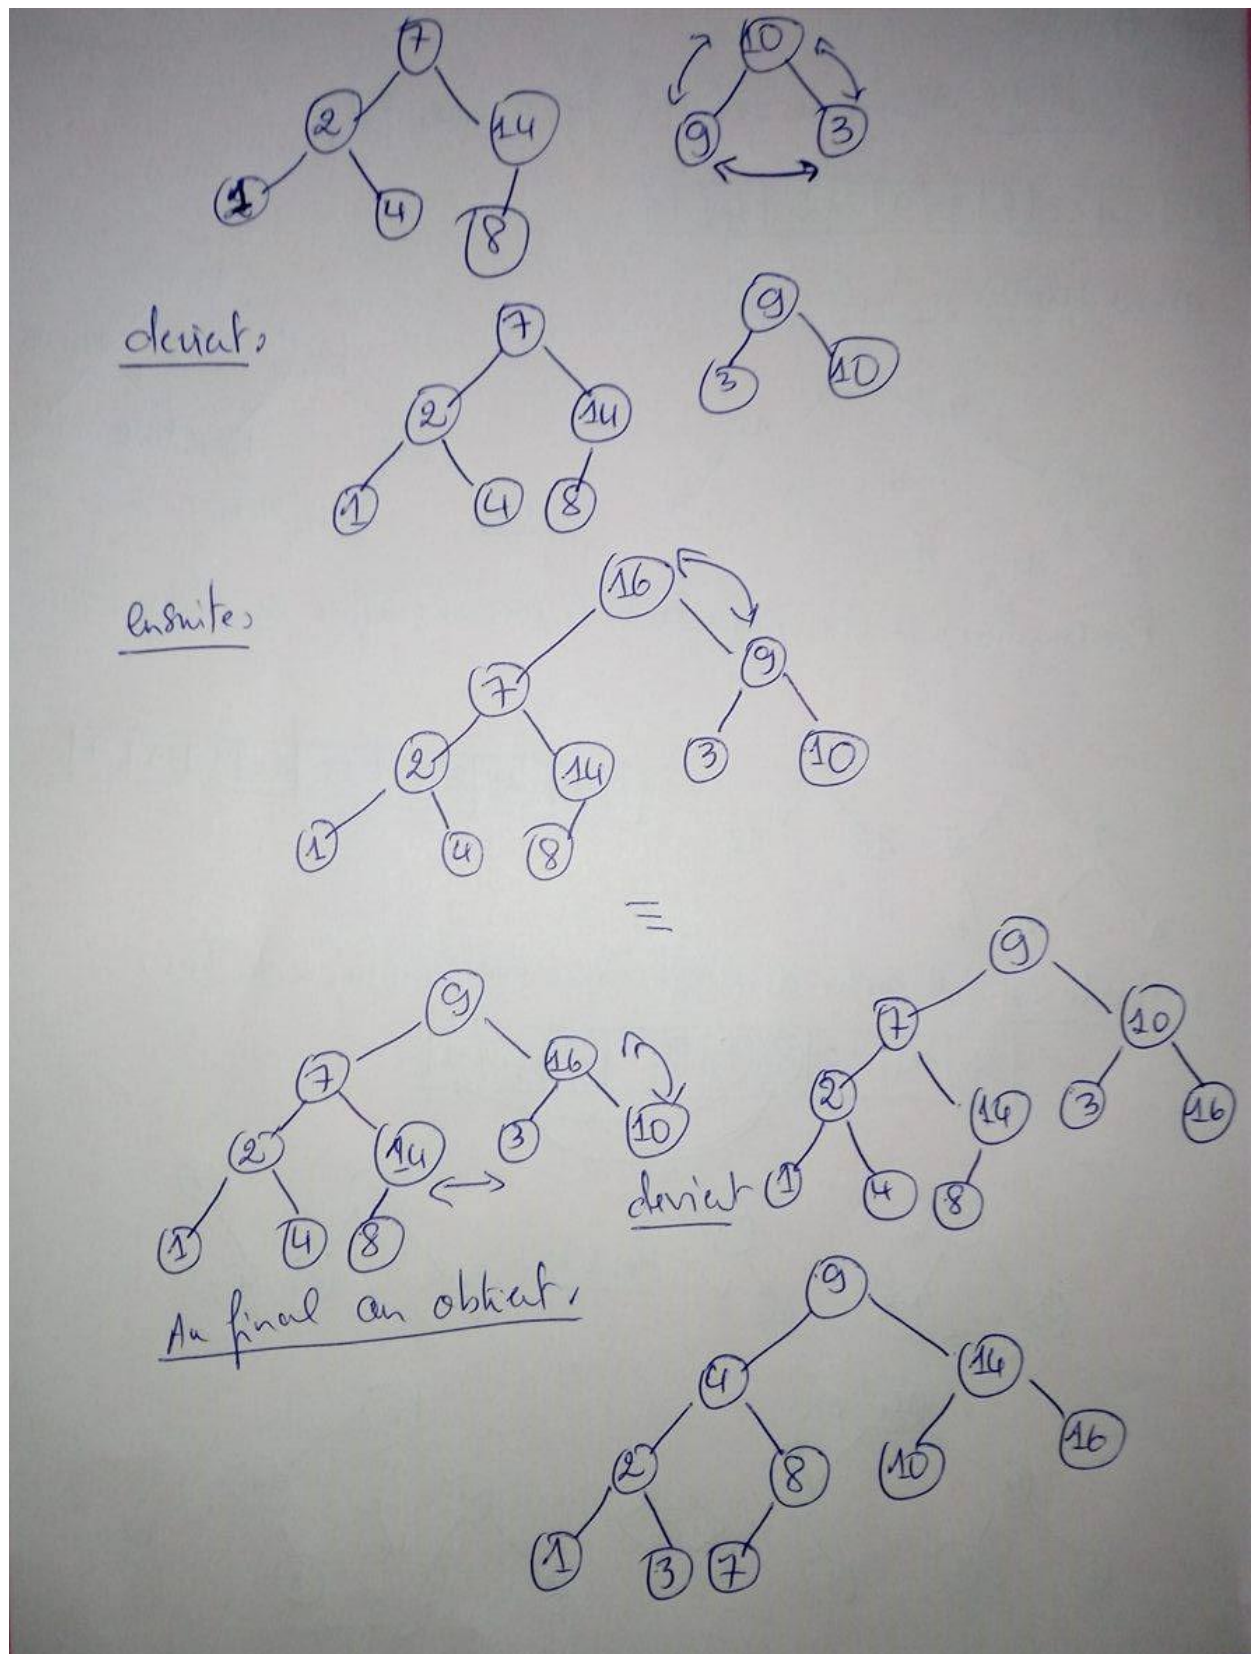 7 10
2 14 9 3
1 4 8
devient,
7 9
2 14 3 10
1 4 8
ensuite,
16
7 9
2 14 3 10
1 4 8
9
7 16
2 14 3 10
1 4 8
devient
9
7 10
2 14 3 16
1 4 8
Au final on obtient,
9
4 14
2 8 10 16
1 3 7